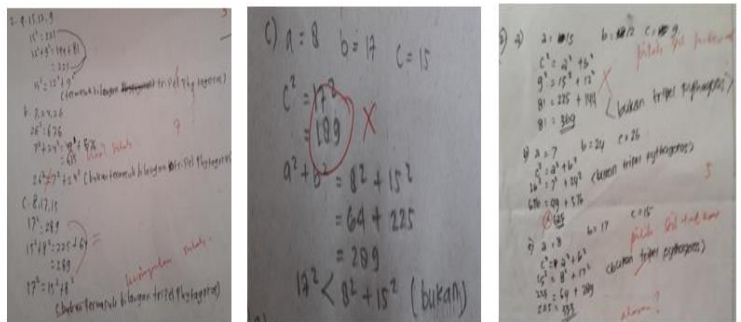 2. 9.15.12.9
15² = 225
12² + 9² = 144 + 81
= 225
15² = 12² + 9²
(termasuk bilangan tripel phytagoras)
b. 7, 24, 26
26² = 676
7² + 24² = 49 + 576
= 625
26² ≠ 7² + 24² (bukan termasuk bilangan tripel Phytagoras)
C. 8, 17, 15
17² = 289
15² + 8² = 225 + 64
= 289
17² = 15² + 8²
(bukan termasuk bilangan tripel Phytagoras)
C) a = 8 b = 17 c = 15
c² = 17²
= 189
X
a² + b² = 8² + 15²
= 64 + 225
= 289
17² < 8² + 15² (bukan)
a) a = 15 b = 12 c = 9
c² = a² + b²
9² = 15² + 12²
81 = 225 + 144
81 = 369
(bukan tripel pythagoras)
b) a = 7 b = 24 c = 26
c² = a² + b²
26² = 7² + 24² (bukan tripel pythagoras)
676 = 49 + 576
625
5
a = 8 b = 17 c = 15
c² = a² + b²
15² = 8² + 17² (bukan tripel pythagoras)
= 64 + 289
225 = 353
alasan?